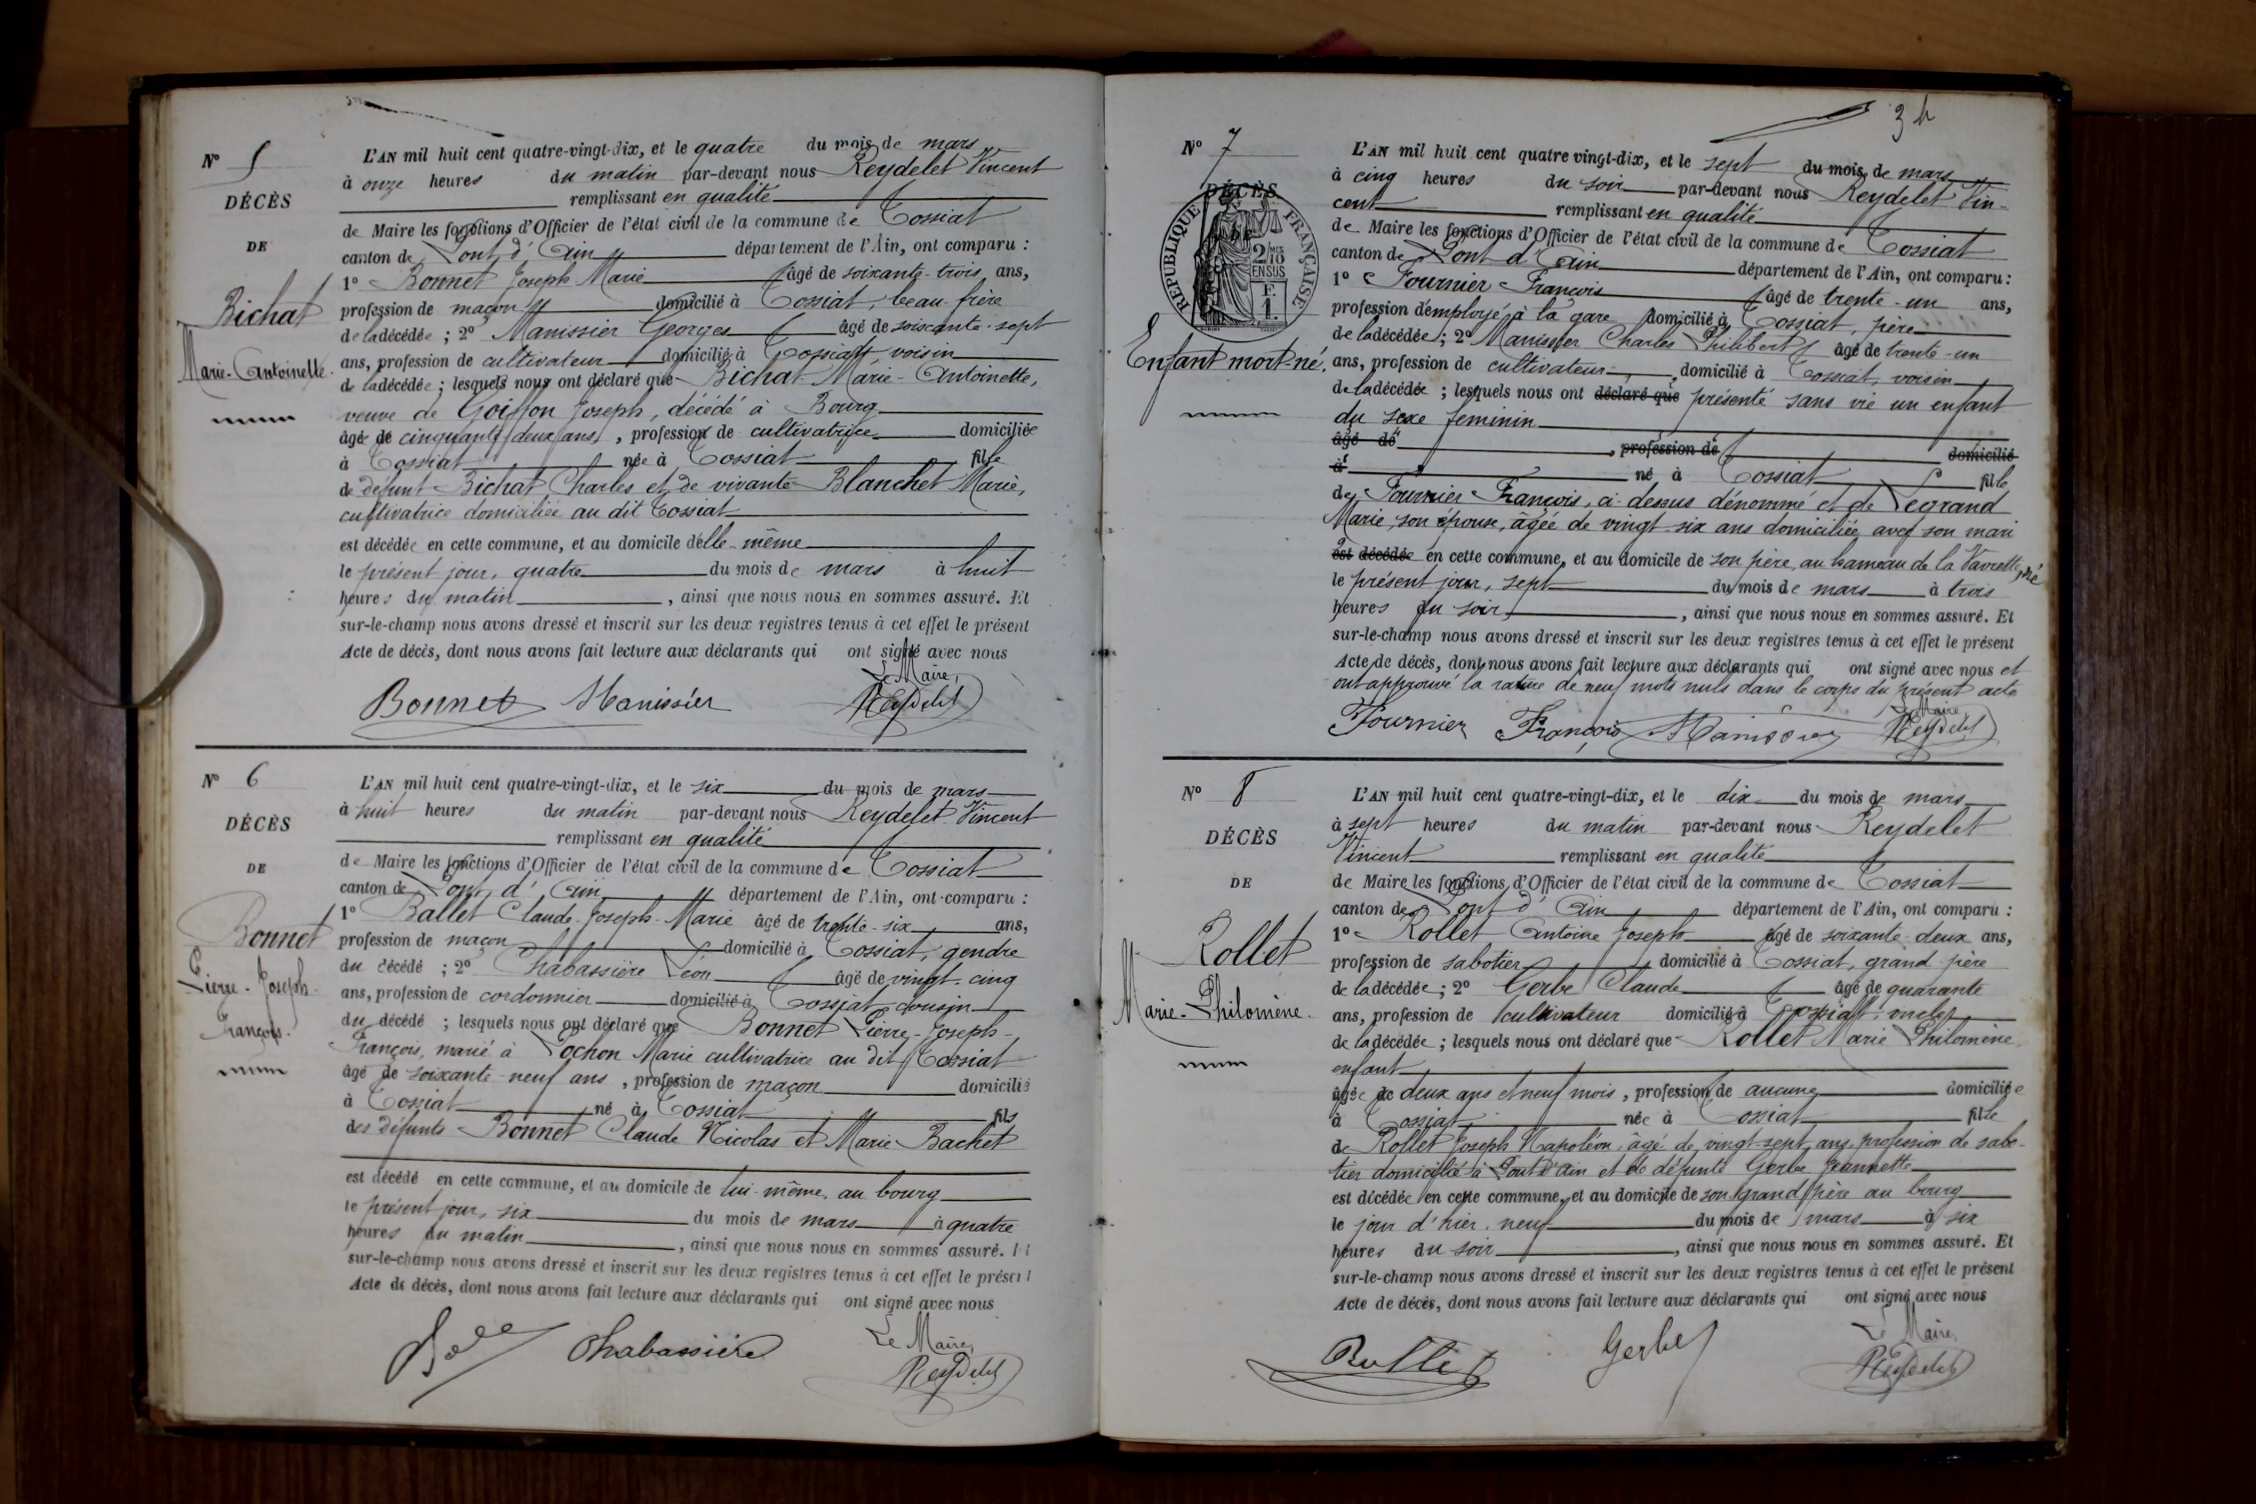 N° 5
DÉCÈS
DE
Bichat
Marie-Antoinette.
L'AN mil huit cent quatre-vingt-dix, et le quatre du mois de mars
à onze heures du matin par-devant nous Reydelet Vincent
remplissant en qualité
de Maire les fonctions d'Officier de l'état civil de la commune de Tossiat
canton de Pont d'Ain département de l'Ain, ont comparu :
1° Bonnet Joseph Marie âgé de soixante-trois ans,
profession de maçon domicilié à Tossiat, beau-frère
de la décédée ; 2° Manissier Georges âgé de soixante-sept
ans, profession de cultivateur domicilié à Tossiat, voisin
de la décédée ; lesquels nous ont déclaré que Bichat Marie-Antoinette,
veuve de Goiffon Joseph, décédé à Bourg
âgée de cinquante deux ans, profession de cultivatrice domiciliée
à Tossiat née à Tossiat fille
de défunt Bichat Charles et de vivante Blanchet Marie,
cultivatrice domiciliée au dit Tossiat
est décédée en cette commune, et au domicile d'elle-même
le présent jour, quatre du mois de mars à huit
heures du matin, ainsi que nous nous en sommes assuré. Et
sur-le-champ nous avons dressé et inscrit sur les deux registres tenus à cet effet le présent
Acte de décès, dont nous avons fait lecture aux déclarants qui ont signé avec nous
Le Maire,
Bonnet Manissier Reydelet
N° 6
DÉCÈS
DE
Bonnet
Pierre-Joseph-
François.
L'AN mil huit cent quatre-vingt-dix, et le six du mois de mars
à huit heures du matin par-devant nous Reydelet Vincent
remplissant en qualité
de Maire les fonctions d'Officier de l'état civil de la commune de Tossiat
canton de Pont d'Ain département de l'Ain, ont comparu :
1° Ballet Claude-Joseph-Marie âgé de trente-six ans,
profession de maçon domicilié à Tossiat, gendre
du décédé ; 2° Chabassière Léon âgé de vingt-cinq
ans, profession de cordonnier domicilié à Tossiat, cousin
du décédé ; lesquels nous ont déclaré que Bonnet Pierre-Joseph-
François, marié à Pochon Marie cultivatrice au dit Tossiat
âgé de soixante-neuf ans, profession de maçon domicilié
à Tossiat né à Tossiat fils
des défunts Bonnet Claude Nicolas et Marie Bachet
est décédé en cette commune, et au domicile de lui-même, au bourg
le présent jour, six du mois de mars à quatre
heures du matin, ainsi que nous nous en sommes assuré. Et
sur-le-champ nous avons dressé et inscrit sur les deux registres tenus à cet effet le présent
Acte de décès, dont nous avons fait lecture aux déclarants qui ont signé avec nous
Le Maire,
Chabassière Reydelet
N° 7
DÉCÈS
DE
RÉPUBLIQUE FRANÇAISE
Enfant mort-né.
L'AN mil huit cent quatre vingt-dix, et le sept du mois de mars
à cinq heures du soir par-devant nous Reydelet Vin-
cent remplissant en qualité
de Maire les fonctions d'Officier de l'état civil de la commune de Tossiat
canton de Pont d'Ain département de l'Ain, ont comparu :
1° Fournier François âgé de trente-un ans,
profession d'employé à la gare domicilié à Tossiat, père
de la décédée ; 2° Manissier Charles Philibert âgé de trente-un
ans, profession de cultivateur, domicilié à Tossiat, voisin
de la décédée ; lesquels nous ont déclaré que présenté sans vie un enfant
du sexe feminin
âgé de , profession de domicilié
à né à Tossiat fille
de Fournier François, ci-dessus dénommé et de Legrand
Marie, son épouse, âgée de vingt-six ans domiciliée avec son mari
est décédée en cette commune, et au domicile de son père, au hameau de la Vavrette, né
le présent jour, sept du mois de mars à trois
heures du soir, ainsi que nous nous en sommes assuré. Et
sur-le-champ nous avons dressé et inscrit sur les deux registres tenus à cet effet le présent
Acte de décès, dont nous avons fait lecture aux déclarants qui ont signé avec nous et
ont approuvé la rature de neuf mots nuls dans le corps du présent acte
Le Maire
Fournier François Manissier Reydelet
N° 8
DÉCÈS
DE
Rollet
Marie-Philomène.
L'AN mil huit cent quatre-vingt-dix, et le dix du mois de mars
à sept heures du matin par-devant nous Reydelet
Vincent remplissant en qualité
de Maire les fonctions d'Officier de l'état civil de la commune de Tossiat
canton de Pont d'Ain département de l'Ain, ont comparu :
1° Rollet Antoine Joseph âgé de soixante-deux ans,
profession de sabotier, domicilié à Tossiat, grand-père
de la décédée ; 2° Gerbe Claude âgé de quarante
ans, profession de cultivateur domicilié à Tossiat, oncle
de la décédée ; lesquels nous ont déclaré que Rollet Marie Philomène,
enfant
âgée de deux ans et neuf mois, profession de aucune domiciliée
à Tossiat née à Tossiat fille
de Rollet Joseph Napoléon, âgé de vingt-sept ans, profession de sabo-
tier domicilié à Pont d'Ain et de défunte Gerbe Jeannette
est décédée en cette commune, et au domicile de son grand père au bourg
le jour d'hier, neuf du mois de mars à six
heures du soir, ainsi que nous nous en sommes assuré. Et
sur-le-champ nous avons dressé et inscrit sur les deux registres tenus à cet effet le présent
Acte de décès, dont nous avons fait lecture aux déclarants qui ont signé avec nous
Le Maire,
Rollet Gerbe Reydelet